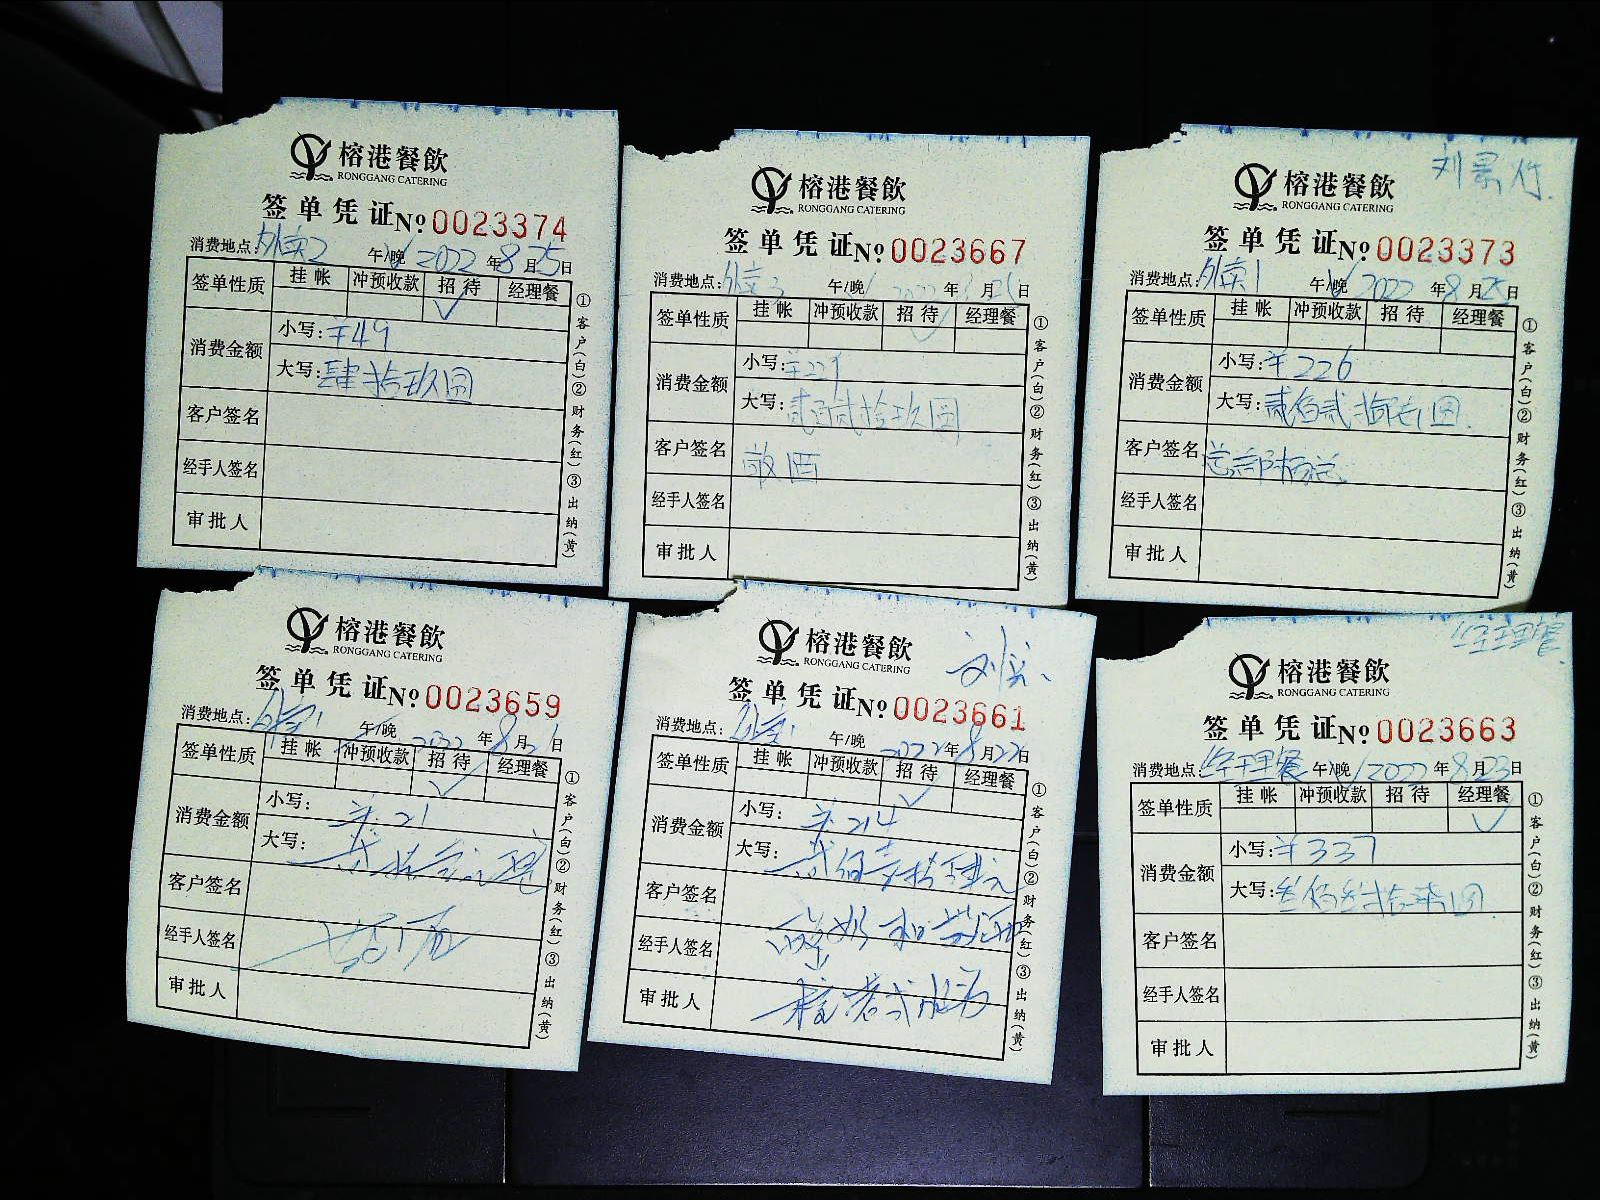 榕港餐飲
RONGGANG CATERING
签单凭证 № 0023374
消费地点:外卖2 午/晚 2022年8月25日
签单性质 挂帐 冲预收款 招待 经理餐
✓
消费金额 小写:¥49
大写:肆拾玖圆
客户签名
经手人签名
审批人
①客户(白)②财务(红)③出纳(黄)
榕港餐飲
RONGGANG CATERING
签单凭证 № 0023667
消费地点:外卖3 午/晚 2022年 月25日
签单性质 挂帐 冲预收款 招待 经理餐
✓
消费金额 小写:¥229
大写:贰百贰拾玖圆
客户签名 敬酒
经手人签名
审批人
①客户(白)②财务(红)③出纳(黄)
刘景
榕港餐飲
RONGGANG CATERING
签单凭证 № 0023373
消费地点:外卖1 午/晚 2022年8月25日
签单性质 挂帐 冲预收款 招待 经理餐
消费金额 小写:¥226
大写:贰佰贰拾 圆
客户签名 总部陈总
经手人签名
审批人
①客户(白)②财务(红)③出纳(黄)
榕港餐飲
RONGGANG CATERING
签单凭证 № 0023659
消费地点:外卖1 午/晚 2022年8月21日
签单性质 挂帐 冲预收款 招待 经理餐
✓
消费金额 小写:¥21
大写:贰拾壹元
客户签名
经手人签名
审批人
①客户(白)②财务(红)③出纳(黄)
榕港餐飲
RONGGANG CATERING
签单凭证 № 0023661
消费地点:外卖1 午/晚 2022年8月22日
签单性质 挂帐 冲预收款 招待 经理餐
✓
消费金额 小写:¥214
大写:贰佰壹拾肆元
客户签名
经手人签名
审批人
①客户(白)②财务(红)③出纳(黄)
经理餐
榕港餐飲
RONGGANG CATERING
签单凭证 № 0023663
消费地点:经理餐 午/晚 2022年8月23日
签单性质 挂帐 冲预收款 招待 经理餐
✓
消费金额 小写:¥337
大写:叁佰叁拾柒圆
客户签名
经手人签名
审批人
①客户(白)②财务(红)③出纳(黄)